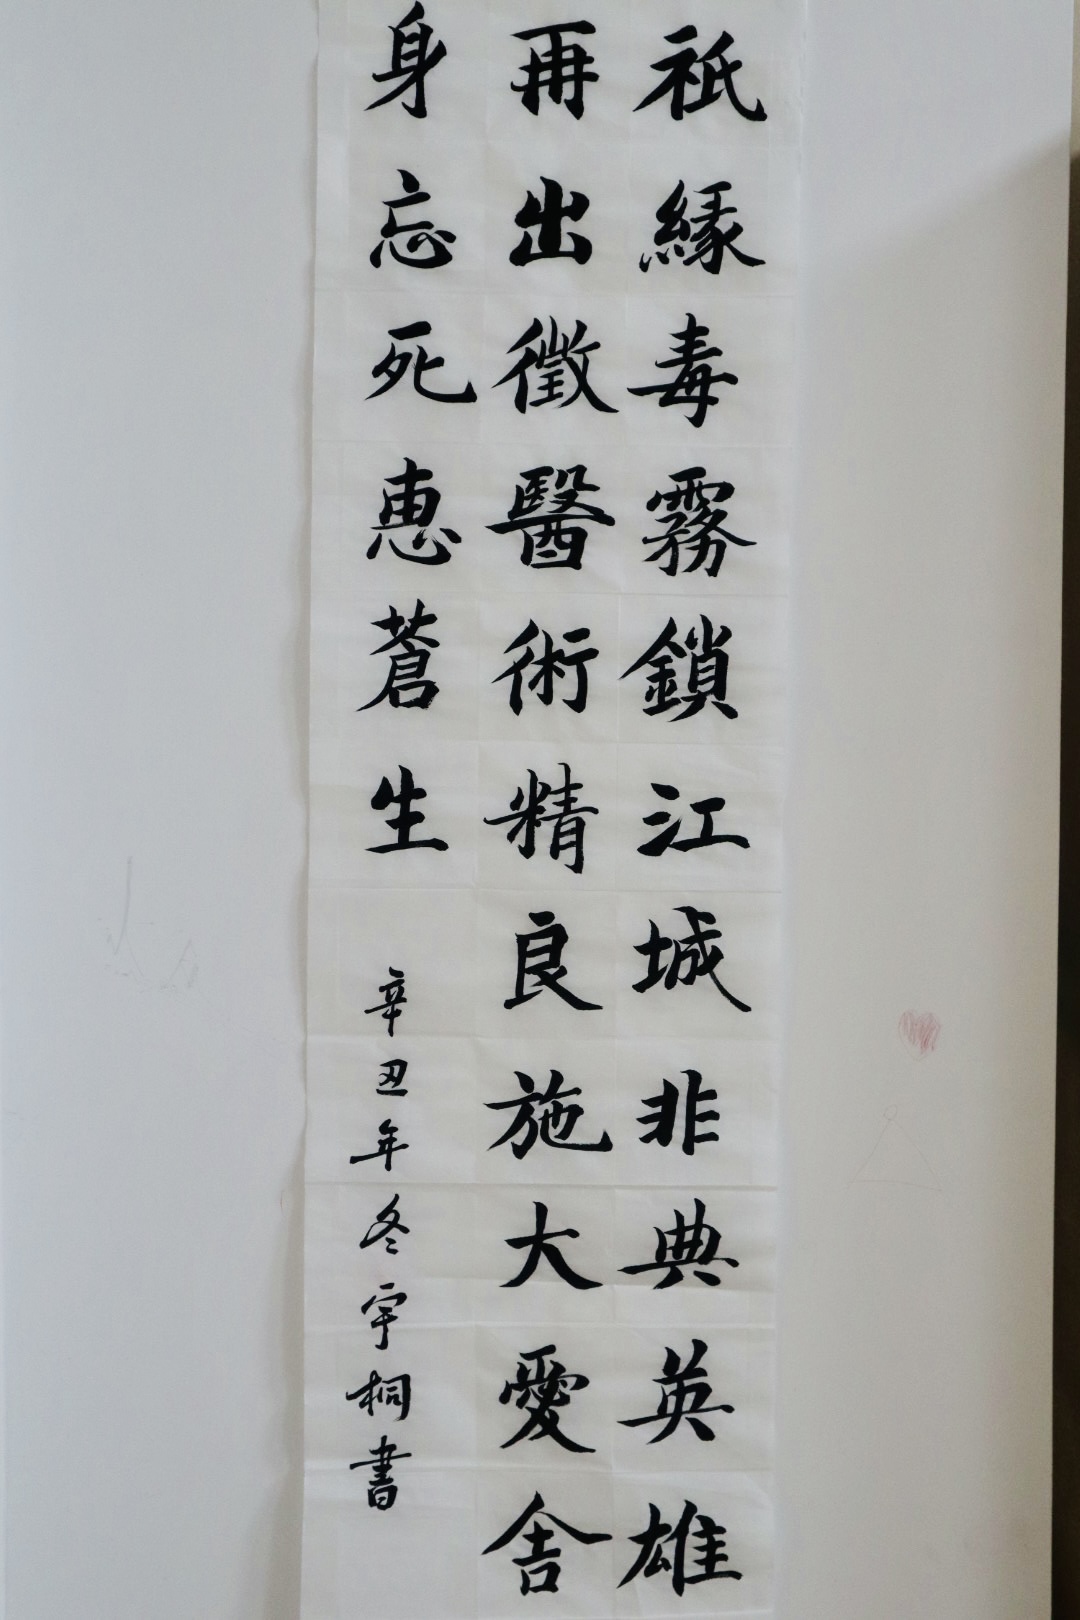 祇緣毒霧鎖江城非典英雄
再出徵醫術精良施大愛舍
身忘死惠蒼生
辛丑年冬宇桐書